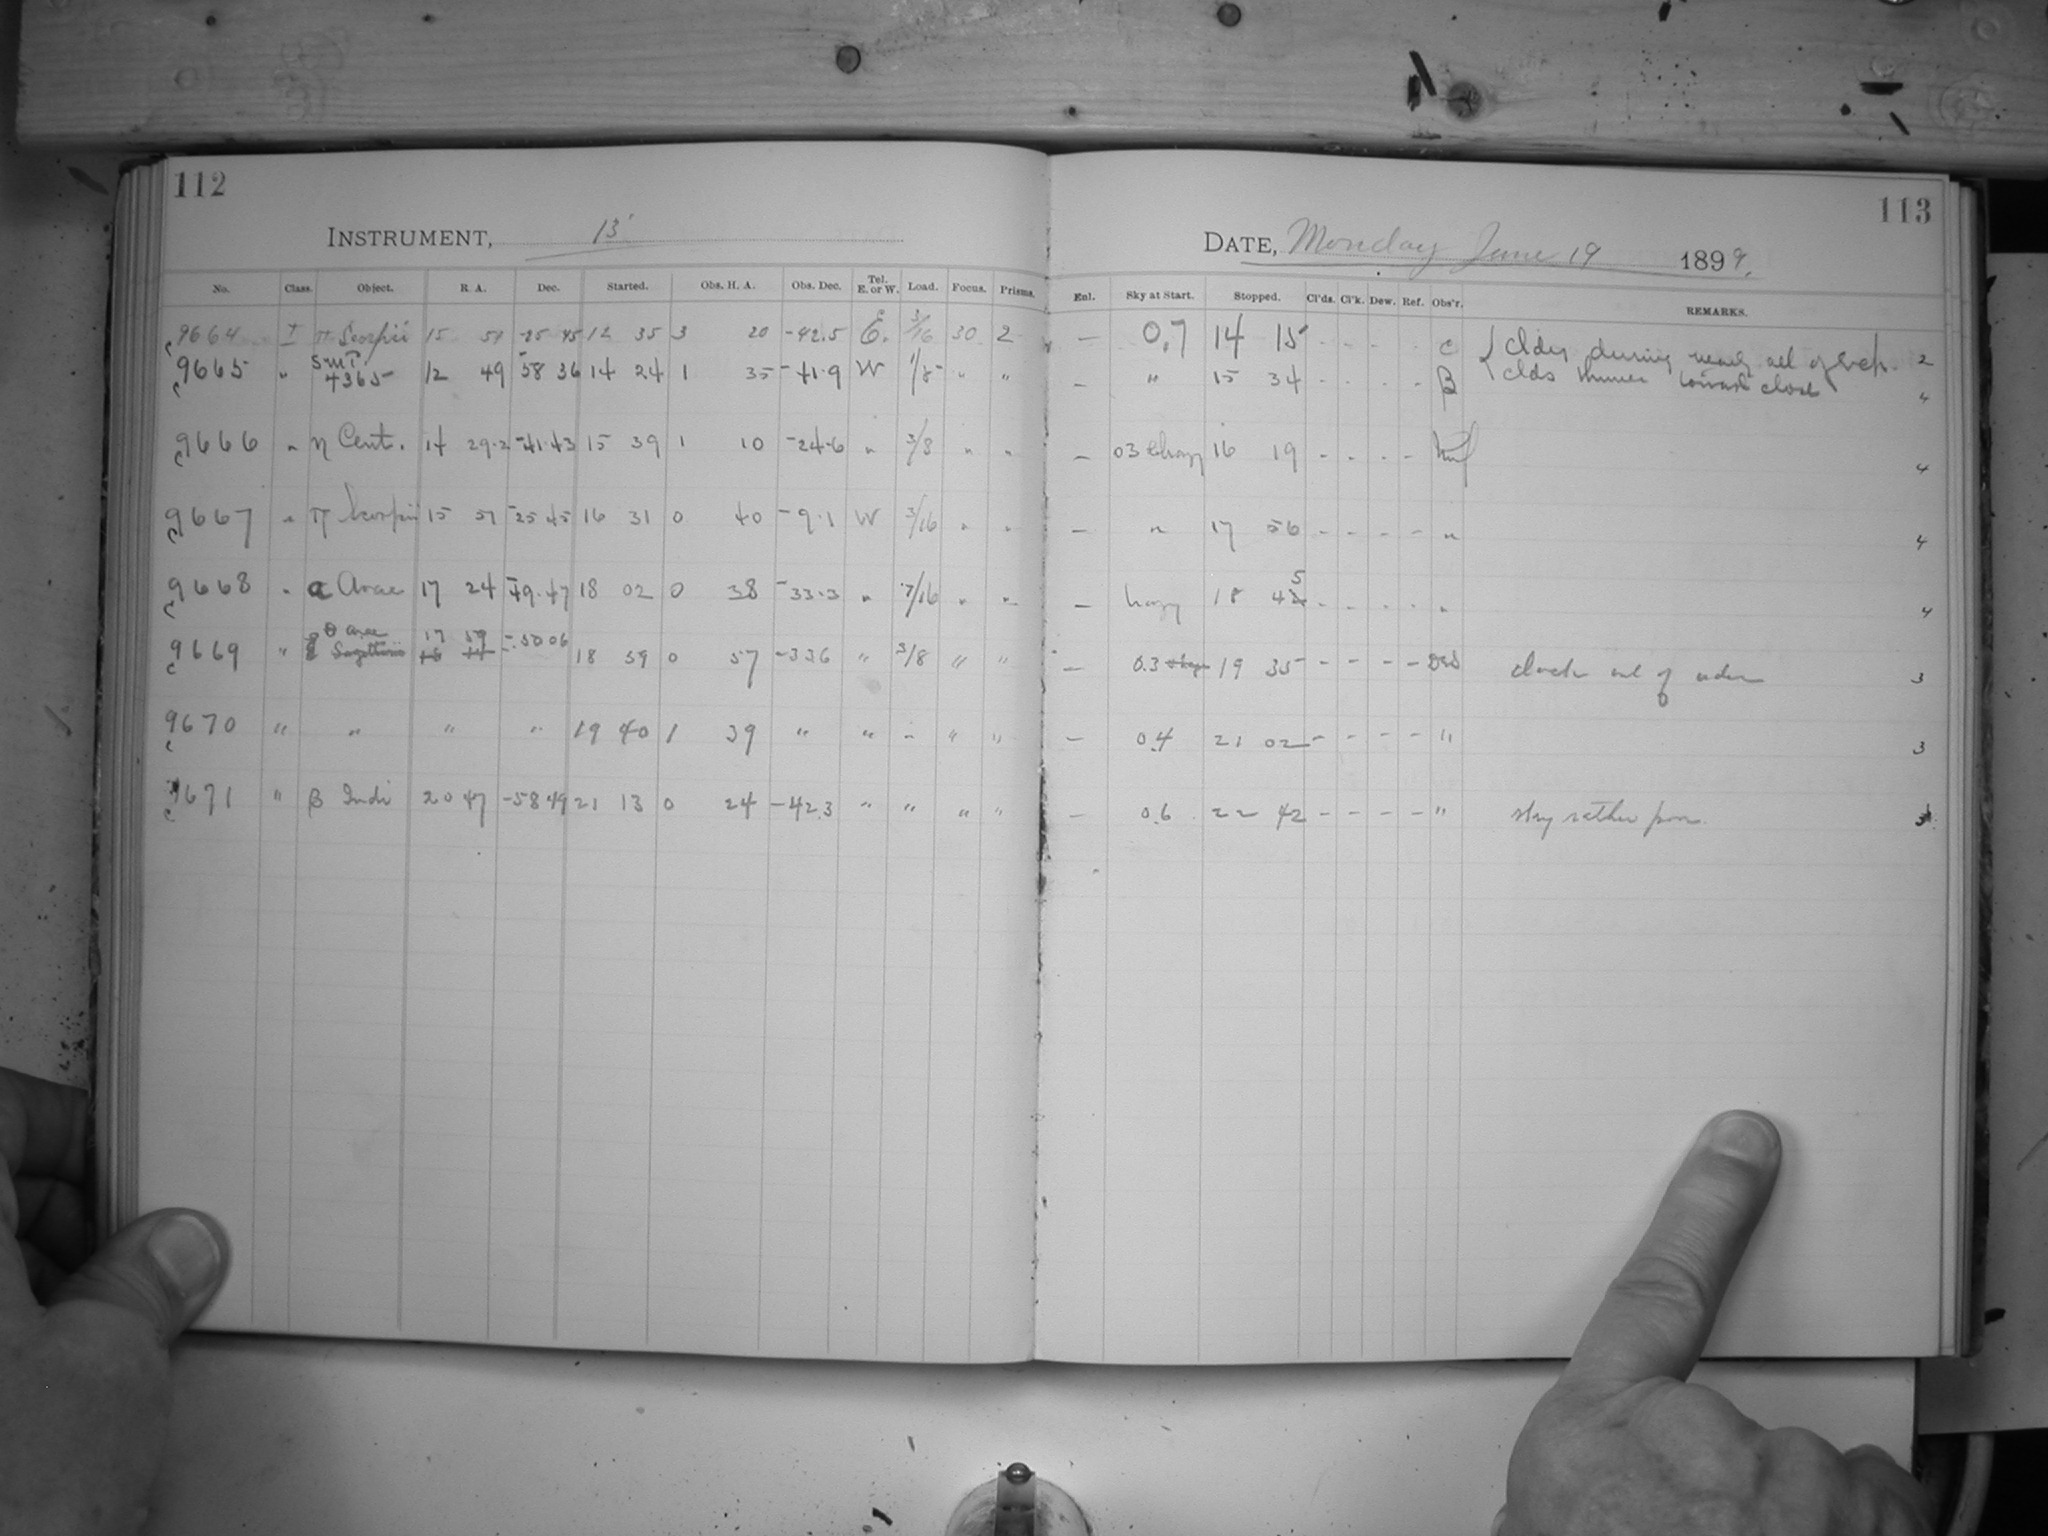 112
113
INSTRUMENT, 13"
DATE, Monday June 19 1899.
No. Class. Object. R. A. Dec. Started. Obs. H. A. Obs. Dec. Tel. E. or W. Load. Focus. Prisms. Enl. Sky at Start. Stopped. Cl'ds. Cl'k. Dew. Ref. Obs'r. REMARKS.
c9664 I π Scorpii 15 51 -25 45 12 35 3 20 -42.5 E. 3/16 30 2 - 0.7 14 15 - - - - C Cldy during nearly all of 2
c9665 " 4365 12 49 -58 36 14 24 1 35 -41.9 W 1/8 " " - " 15 34 - - - - B clds toward close "
c9666 " η Cent. 14 29.2 -41.43 15 39 1 10 -24.6 " 3/8 " " - 03 16 19 - - - - 4
c9667 " π Scorpii 15 51 -25 45 16 31 0 40 -9.1 W 3/16 " " - " 17 56 - - - - " 4
c9668 " α Arae 17 24 -49.47 18 02 0 38 -33.3 " 7/16 " " - hazy 18 45 - - - - " 4
c9669 " θ Arae 17 59 -50 06 18 59 0 57 -33.6 " 3/8 " " - 0.3 19 35 - - - - clock out of order 3
c9670 " " " " 19 40 1 39 " " " " " - 0.4 21 02 - - - - " 3
c9671 " β Indi 20 47 -58 49 21 13 0 24 -42.3 " " " " - 0.6 22 42 - - - - " sky rather poor. 3